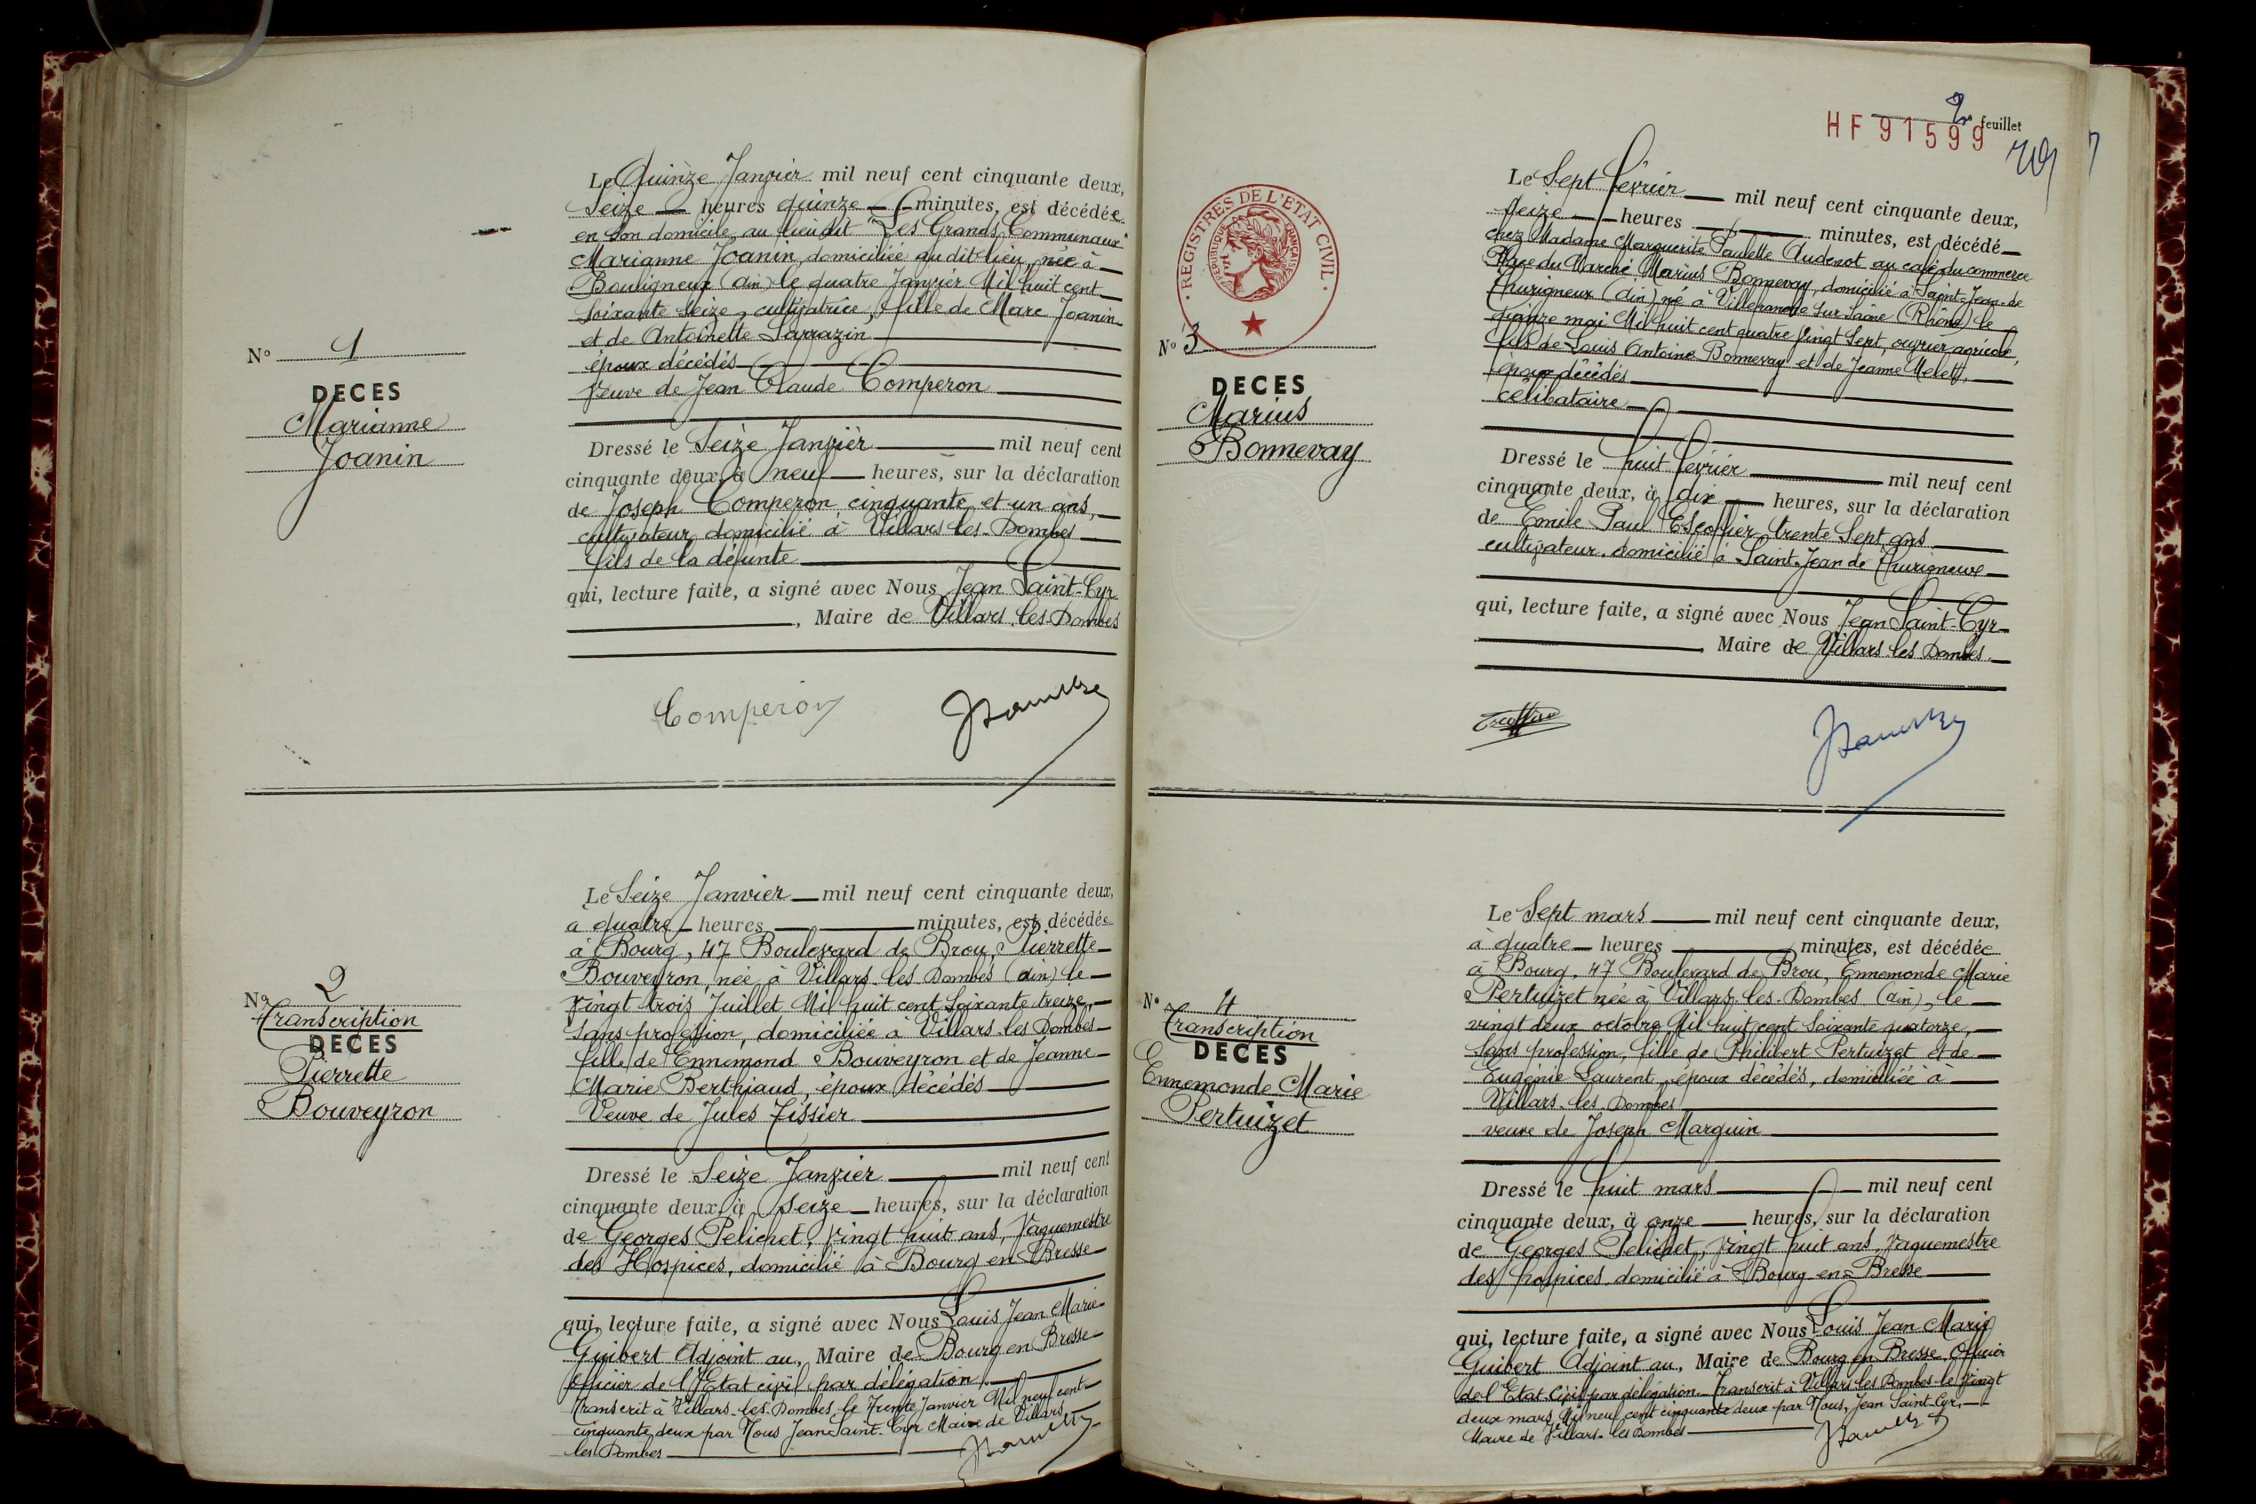 Le Quinze Janvier mil neuf cent cinquante deux,
Seize heures quinze minutes, est décédée
en son domicile au lieudit "Les Grands Communaux"
Marianne Joanin, domiciliée audit lieu, née à
Bouligneux (Ain) le quatre Janvier Mil huit cent
soixante seize, cultivatrice, fille de Marc Joanin
et de Antoinette Sarrazin
époux décédés
veuve de Jean Claude Comperon
N° 1
DECES
Marianne
Joanin
Dressé le Seize Janvier mil neuf cent
cinquante deux, à neuf heures, sur la déclaration
de Joseph Comperon, cinquante et un ans,
cultivateur, domicilié à Villars les Dombes
fils de la défunte
qui, lecture faite, a signé avec Nous Jean Saint-Cyr
, Maire de Villars les Dombes
Comperon
Le Seize Janvier mil neuf cent cinquante deux,
a quatre heures minutes, est décédée
à Bourg, 47 Boulevard de Brou, Pierrette
Bouveyron, née à Villars les Dombes (Ain) le
vingt trois Juillet Mil huit cent soixante treize,
sans profession, domiciliée à Villars les Dombes
fille de Ennemond Bouveyron et de Jeanne
Marie Berthiaud, époux décédés
Veuve de Jules Tissier
N° 2
Transcription
DECES
Pierrette
Bouveyron
Dressé le Seize Janvier mil neuf cent
cinquante deux, à seize heures, sur la déclaration
de Georges Pelichet, vingt huit ans, Vaguemestre
des Hospices, domicilié à Bourg en Bresse
qui, lecture faite, a signé avec Nous Louis Jean Marie
Guibert Adjoint au, Maire de Bourg en Bresse
officier de l'Etat civil par délégation.
Transcrit à Villars-les-Dombes le Trente Janvier Mil neuf cent
cinquante deux par Nous Jean Saint-Cyr Maire de Villars
les Dombes
2 feuillet
HF 91599
REGISTRES DE L'ETAT CIVIL
REPUBLIQUE FRANÇAISE
Le Sept Février mil neuf cent cinquante deux,
seize heures minutes, est décédé
chez Madame Marguerite Paulette Audenot au café du commerce
Place du Marché, Marius Bonnevay, domicilié à Saint-Jean-de
Thurigneux (Ain) né à Villefranche sur Saône (Rhône) le
quinze mai Mil huit cent quatre vingt Sept, ouvrier agricole,
fils de Louis Antoine Bonnevay et de Jeanne Melet,
époux décédés
célibataire
N° 3
DECES
Marius
Bonnevay
Dressé le huit février mil neuf cent
cinquante deux, à dix heures, sur la déclaration
de Emile Paul Escoffier trente Sept ans
cultivateur, domicilié à Saint-Jean de Thurigneux
qui, lecture faite, a signé avec Nous Jean Saint-Cyr
, Maire de Villars les Dombes
Escoffier
Le Sept mars mil neuf cent cinquante deux,
à quatre heures minutes, est décédée
à Bourg, 47 Boulevard de Brou, Ennemonde Marie
Pertuizet née à Villars-les-Dombes (Ain), le
vingt deux octobre Mil huit cent soixante quatorze,
sans profession, fille de Philibert Pertuizet et de
Eugénie Laurent, époux décédés, domiciliée à
Villars-les-Dombes
veuve de Joseph Marguin
N° 4
Transcription
DECES
Ennemonde Marie
Pertuizet
Dressé le huit mars mil neuf cent
cinquante deux, à onze heures, sur la déclaration
de Georges Pelichet, vingt huit ans, Vaguemestre
des hospices, domicilié à Bourg-en-Bresse
qui, lecture faite, a signé avec Nous Louis Jean Marie
Guibert Adjoint au, Maire de Bourg en Bresse, Officier
de l'Etat Civil par délégation. Transcrit à Villars-les-Dombes le vingt
deux mars Mil neuf cent cinquante deux par Nous, Jean Saint-Cyr,
Maire de Villars-les-Dombes